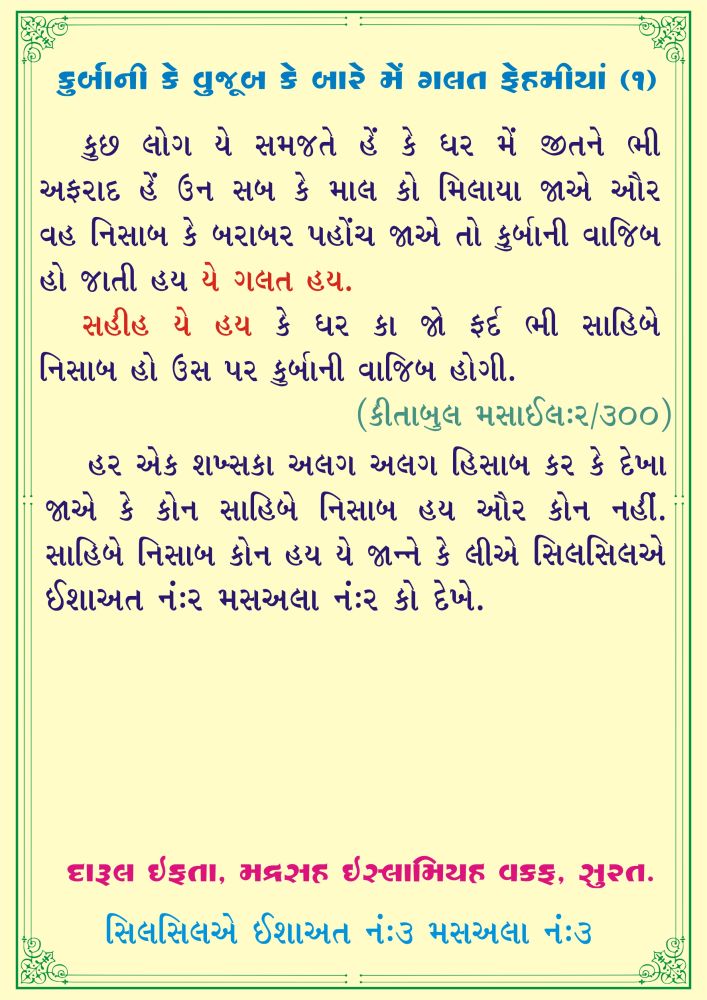 કુર્બાની કે વુજૂબ કે બારે મેં ગલત ફેહમીયાં (૧)
કુછ લોગ યે સમજતે હેં કે ઘર મેં જીતને ભી
અફરાદ હેં ઉન સબ કે માલ કો મિલાયા જાએ ઔર
વહ નિસાબ કે બરાબર પહોંચ જાએ તો કુર્બાની વાજિબ
હો જાતી હય યે ગલત હય.
સહીહ યે હય કે ઘર કા જો ફર્દ ભી સાહિબે
નિસાબ હો ઉસ પર કુર્બાની વાજિબ હોગી.
(કીતાબુલ મસાઈલઃ૨/૩૦૦)
હર એક શખ્સકા અલગ અલગ હિસાબ કર કે દેખા
જાએ કે કોન સાહિબે નિસાબ હય ઔર કોન નહીં.
સાહિબે નિસાબ કોન હય યે જાન્ને કે લીએ સિલસિલએ
ઈશાઅત નંઃ૨ મસઅલા નંઃ૨ કો દેખે.
દારૂલ ઇફતા, મદ્રસહ ઇસ્લામિયહ વકફ, સુરત.
સિલસિલએ ઈશાઅત નંઃ૩ મસઅલા નંઃ૩